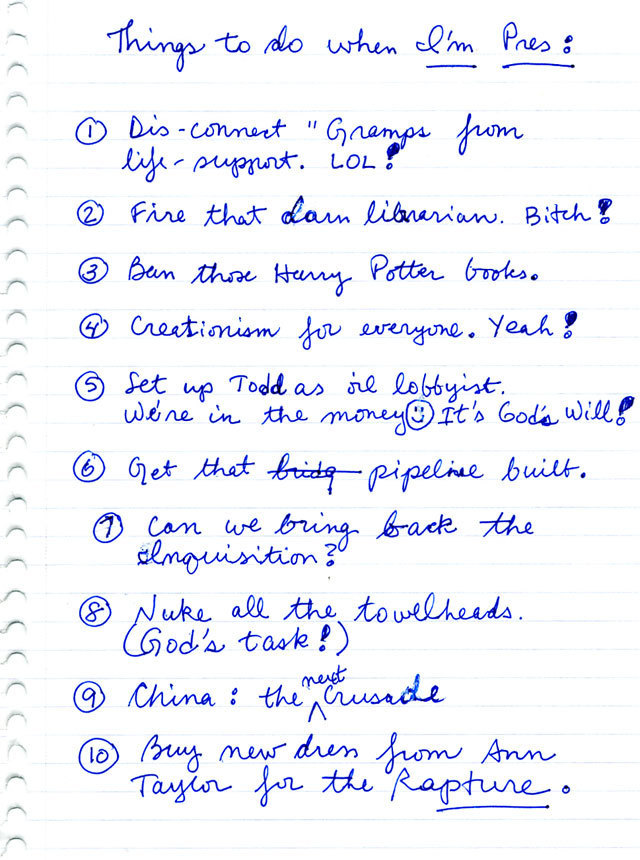 Things to do when I'm Pres:
① Dis-connect "Gramps from
life-support. LOL!
② Fire that darn librarian. Bitch!
③ Ban those Harry Potter books.
④ Creationism for everyone. Yeah!
⑤ Set up Todd as oil lobbyist.
We're in the money☺It's God's Will!
⑥ Get that bridg pipeline built.
⑦ Can we bring back the
Inquisition?
⑧ Nuke all the towelheads.
(God's task!)
⑨ China: the next Crusade
⑩ Buy new dress from Ann
Taylor for the Rapture.